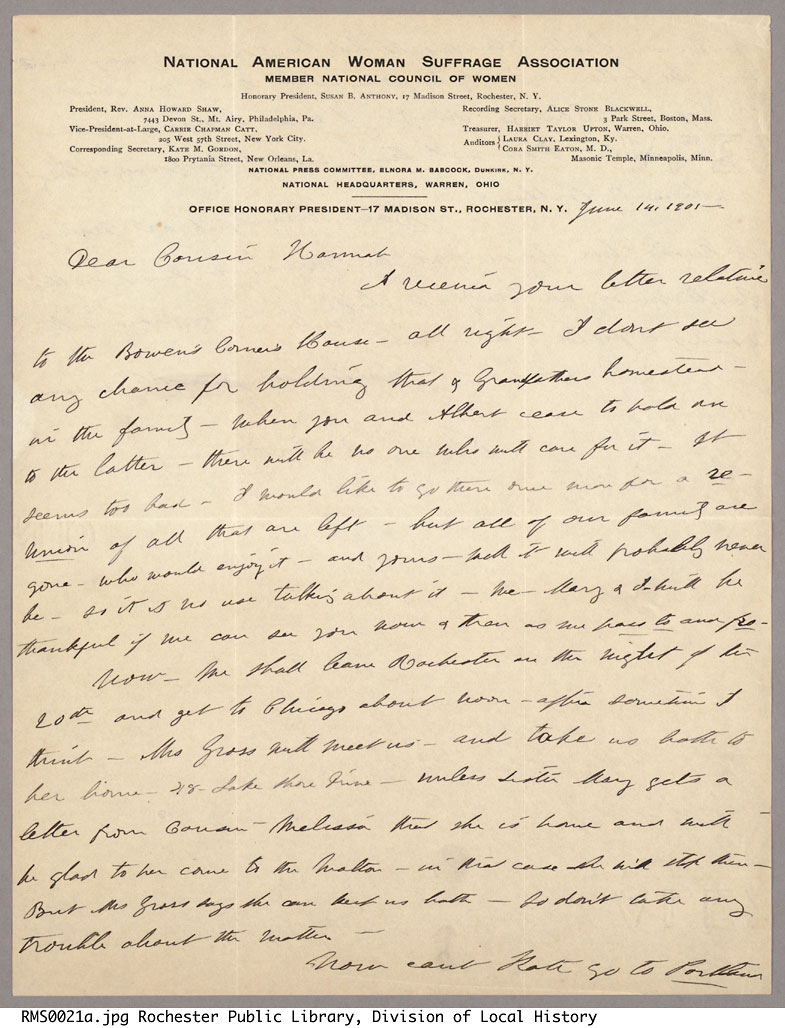 NATIONAL AMERICAN WOMAN SUFFRAGE ASSOCIATION
MEMBER NATIONAL COUNCIL OF WOMEN
Honorary President, SUSAN B. ANTHONY, 17 Madison Street, Rochester, N. Y.
President, REV. ANNA HOWARD SHAW,
7443 Devon St., Mt. Airy, Philadelphia, Pa.
Vice-President-at-Large, CARRIE CHAPMAN CATT,
205 West 57th Street, New York City.
Corresponding Secretary, KATE M. GORDON,
1800 Prytania Street, New Orleans, La.
Recording Secretary, ALICE STONE BLACKWELL,
3 Park Street, Boston, Mass.
Treasurer, HARRIET TAYLOR UPTON, Warren, Ohio.
Auditors { LAURA CLAY, Lexington, Ky.
CORA SMITH EATON, M. D.,
Masonic Temple, Minneapolis, Minn.
NATIONAL PRESS COMMITTEE, ELNORA M. BABCOCK, DUNKIRK, N. Y.
NATIONAL HEADQUARTERS, WARREN, OHIO
OFFICE HONORARY PRESIDENT—17 MADISON ST., ROCHESTER, N. Y. June 14, 1905—
Dear Cousin Hannah
I receive your letter relative
to the Bowen's Corners House - all right - I don't see
any chance for holding that & Grandfathers homestead -
in the family - When you and Albert cease to hold on
to the latter - there will be no one who will care for it - It
seems too bad - I would like to go there once more for a re-
union of all that are left - but all of our family are
gone - who would enjoy it - and yours - well it will probably never
be - so it is no use talking about it - We - Mary & I - will be
thankful if we can see you now & then as we pass to and fro -
Now - We shall leave Rochester on the night of the
20th and get to Chicago about noon - after sometime I
think - Mrs Gross will meet us - and take us both to
her home - 48 - Lake Shore Drive - unless sister Mary gets a
letter from Cousin Melissa that she is home and will
be glad to her come to the - in that case she will stop there -
But Mrs Gross says she can keep us both - So don't take any
trouble about the matter -
Now can't Kate go to Portland
RMS0021a.jpg Rochester Public Library, Division of Local History